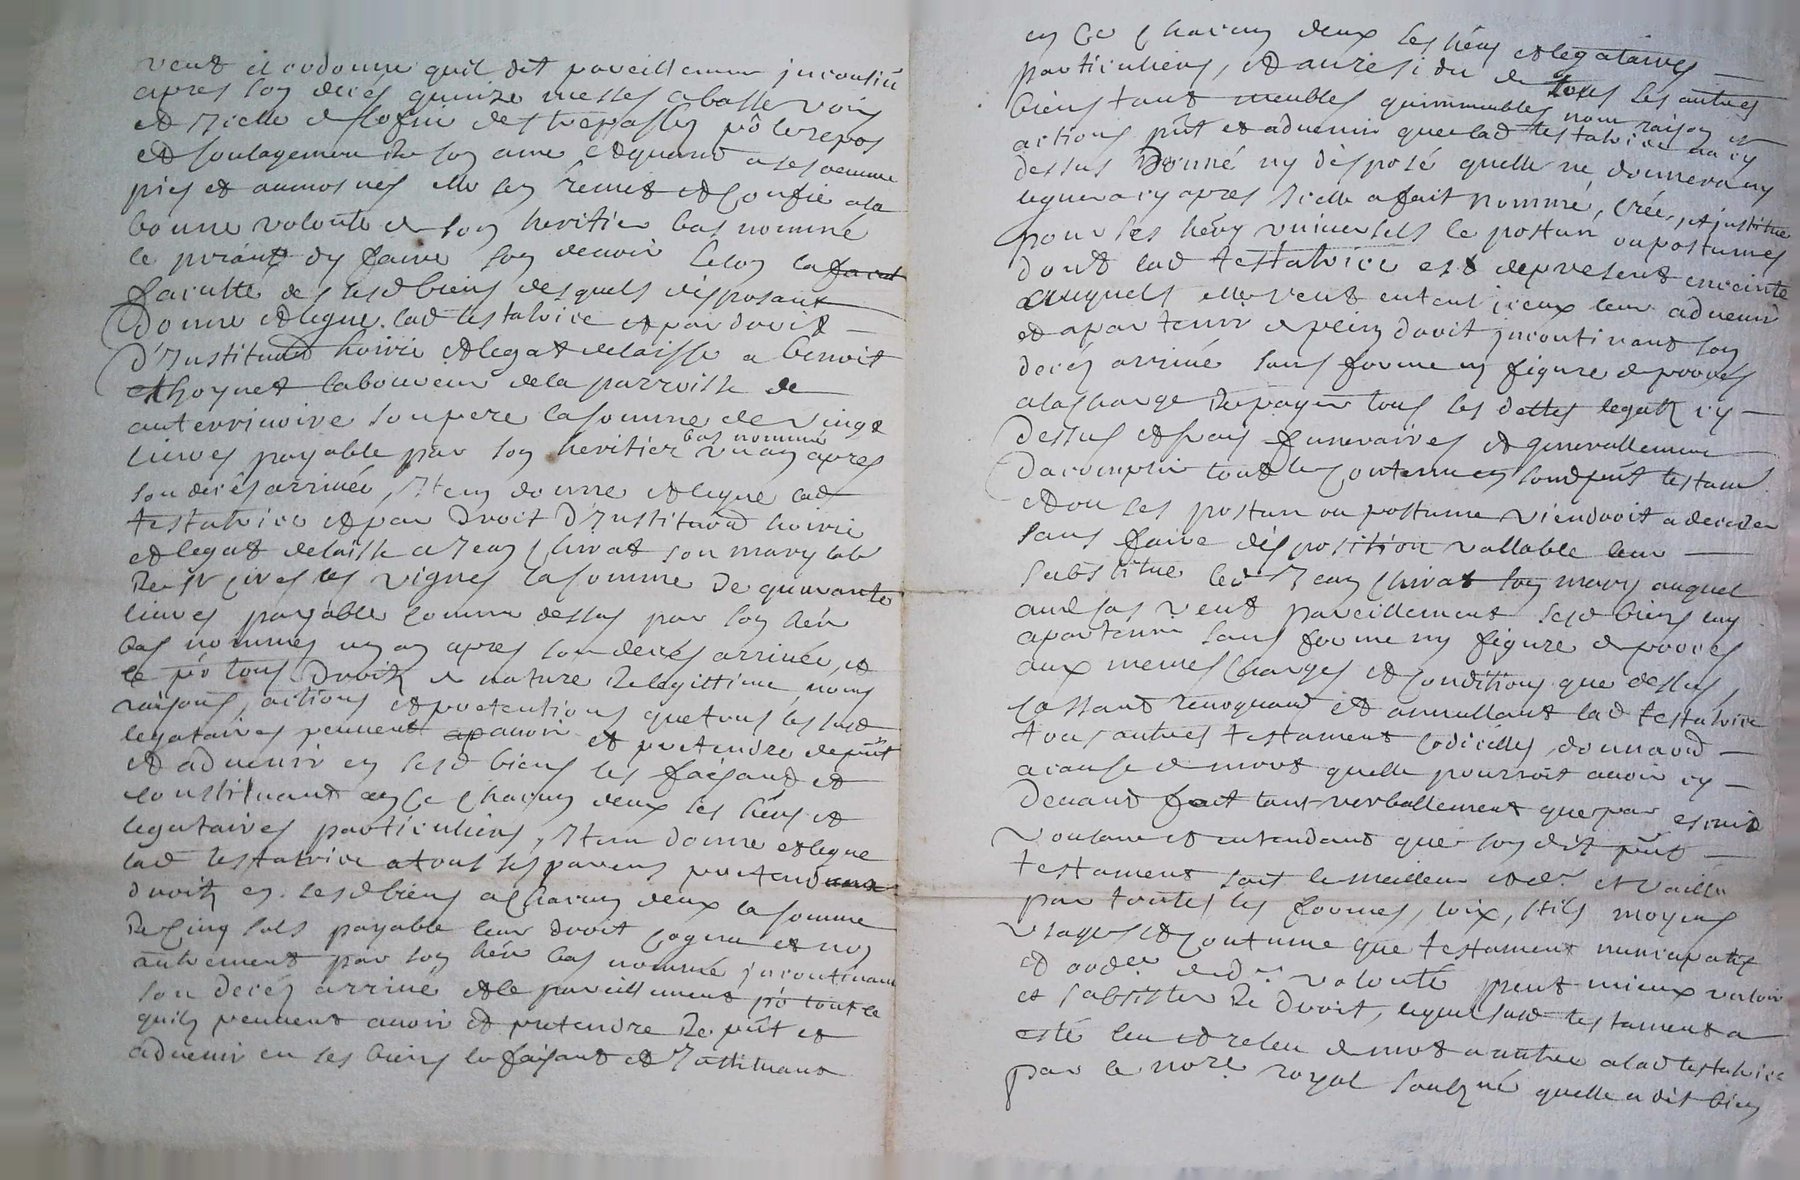 veut et ordonne quil dit pareillement incontin
apres son decés quinze messes a basse voix
et Icelle ofice des trepassés põ le repos
et soulagement de son ame, et quand a ses oeuvres
pies et aumosnes elle sen remet et confie a la
bonne volonté de son heritier bas nommé
le priant dy faire son devoir selon la
faculté de sesd biens desquels disposant
Donne et legue lad testatrice et par droit
d'Institution hoirie et legat delaisse a benoit
laboureur de la parroisse de
son pere la somme de vingt
livres payable par son heritier bas nommé un an apres
son decés arrivée, Item donne et legue lad
testatrice et par Droit D'Institution hoirie
et legat delaisse a Jean Chirat son mary lab
De St les vignes la somme De quarante
livres payable comme dessus par son hér
bas nommés un an apres son decés arrivée, et
ce põ tous Droitz de nature De legittime, noms
raisons, actions et pretentions que tous les susd
legataires peuvent avoir et pretendre de pñt
et advenir en sesd biens les faisant et
constituant en ce chacun deux ses hérs et
legataires particuliers, Item donne et legue
lad testatrice a tous ses parens pretend
droitz en sesd biens a chacun deux la somme
De Cinq sols payable leur droit cognu et non
autrement par son hér bas nommé incontinant
son decés arrivé et ce pareillement põ tout ce
quilz peuvent avoir et pretendre De pñt et
advenir en ses biens les faisant et Instituant
en ce chacun deux ses hérs et legataires
particuliers, et au residu de tous ses autres
biens tant meubles quimmeubles nom raison et
actions pñt et advenir que lad testatrice na cy
dessus Donné ny disposé quelle ne donnera ny
leguera cy apres Icelle a fait nommé, créé, et institue
pour ses hérs universels le postum ou postumes
dont lad testatrice est de present enceinte
auquels elle veut entent iceux leur advenir
et apartenir de plein droit incontinant son
decés arrivé sans forme ny figure de procés
a la charge De payer tous les dettes legatz cy
dessus et frais funeraires et generallement
Dacomplir tout le contenu en sond pñt testam
et ou ses postum ou postume viendroit a deceder
sans faire disposition vallable leur
substitue led Jean Chirat son mary auquel
aud cas veut pareillement sesd biens luy
apartenir sans forme ny figure de procés
aux memes charges et conditions que dessus,
Cassant revoquant et annullant lad testatrice
tous autres testament codicilles donnaõn
a cause de mort quelle pourroit avoir cy
Devant fait tant verballement que par escrit
Voulant et entendant que son dit pñt
testament soit le meilleur et vaille
par toutes les formes, loix, stils moyens
Usages et coutume que testament nuncupatif
et volonté peut mieux valoir
et subsister De Droit, lequel susd testament a
esté leu et releu de mot a autre a lad testatrice
par le nore. royal soubzné quelle a dit bien